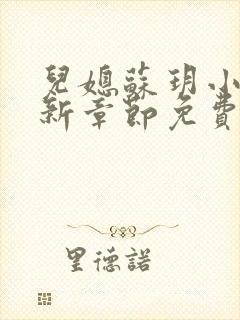 兒媳蘇玥小
新章節免費
里德諾